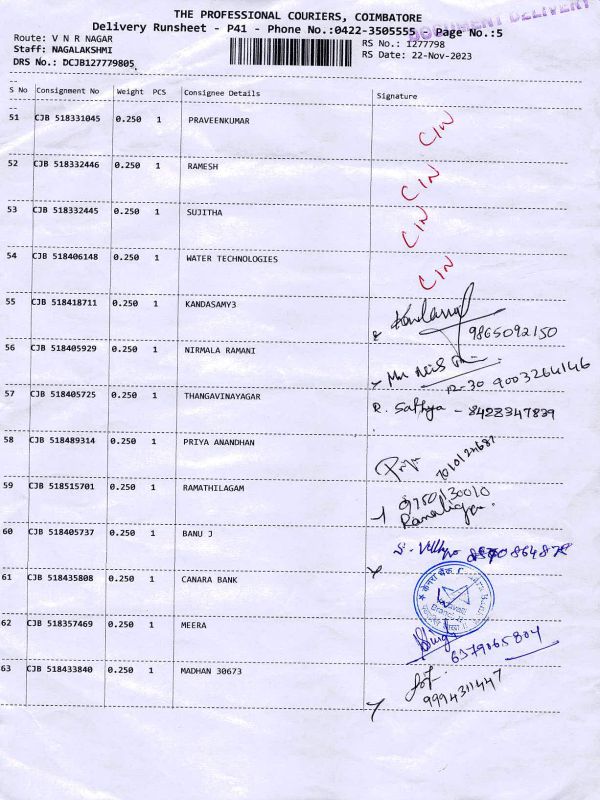 THE PROFESSIONAL COURIERS, COIMBATORE
DOCUMENT DELIVERY
Delivery Runsheet - P41 - Phone No.:0422-3505555 Page No.:5
Route: V N R NAGAR RS No.: 1277798
Staff: NAGALAKSHMI RS Date: 22-Nov-2023
DRS No.: DCJB127779805
S No Consignment No Weight PCS Consignee Details Signature
51 CJB 518331045 0.250 1 PRAVEENKUMAR CIN
52 CJB 518332446 0.250 1 RAMESH CIN
53 CJB 518332445 0.250 1 SUJITHA CIN
54 CJB 518406148 0.250 1 WATER TECHNOLOGIES CIN
55 CJB 518418711 0.250 1 KANDASAMY3
9865092150
56 CJB 518405929 0.250 1 NIRMALA RAMANI
12-30 9003264146
57 CJB 518405725 0.250 1 THANGAVINAYAGAR R. Sathya - 8428347839
58 CJB 518489314 0.250 1 PRIYA ANANDHAN Priya
59 CJB 518515701 0.250 1 RAMATHILAGAM 9750130010
60 CJB 518405737 0.250 1 BANU J
61 CJB 518435808 0.250 1 CANARA BANK
62 CJB 518357469 0.250 1 MEERA
6379065804
63 CJB 518433840 0.250 1 MADHAN 30673
9994311447